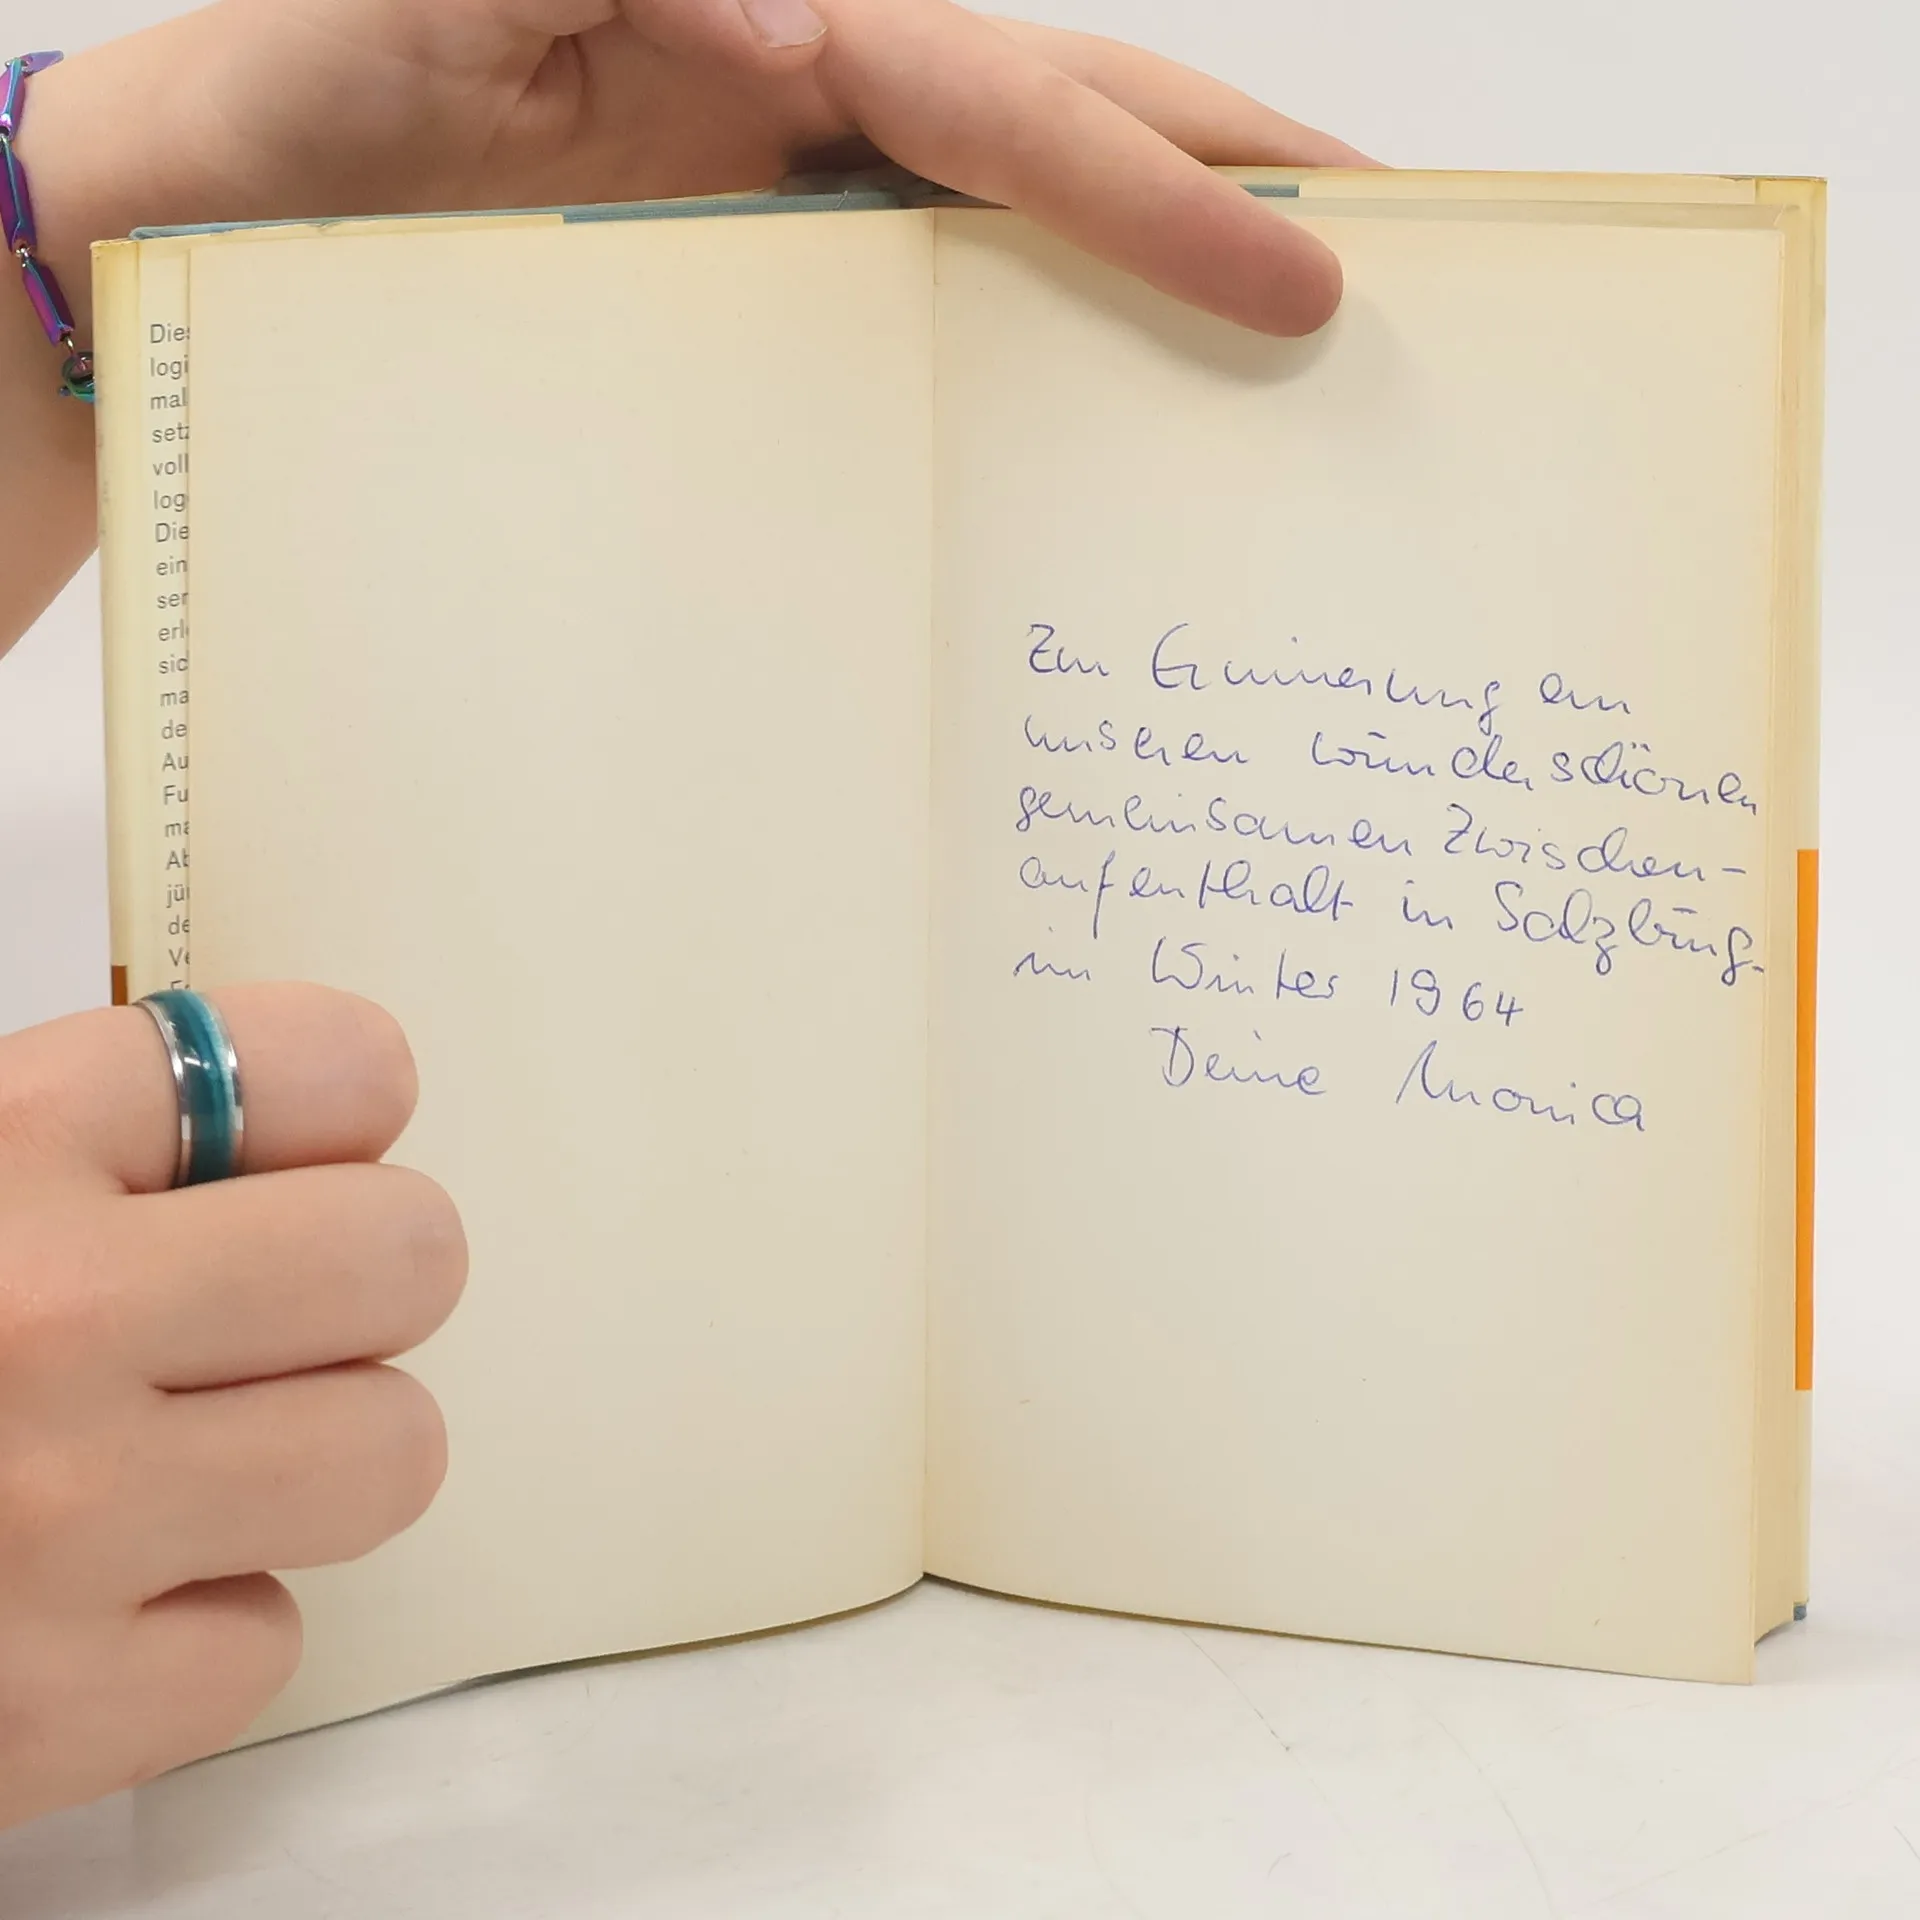 Dies
logi
mal
setz
voll
log
Die
ein
ser
erl
sic
ma
de
Au
Fu
ma
Ab
jü
de
Ve
Zur Erinnerung an
unseren wunderschönen
gemeinsamen Zwischen-
aufenthalt in Salzburg.
im Winter 1964
Deine Monica